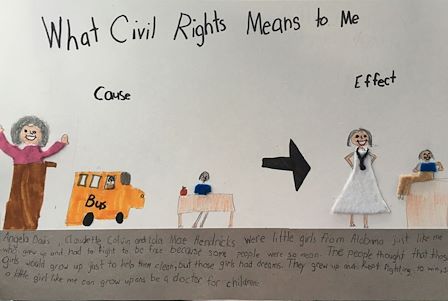 What Civil Rights Means to Me
Cause
Effect
Bus
Angela Davis, Claudette Colvin and Lola Mae Hendricks were little girls from Alabama just like me
who grew up and had to fight to be free because some people were so mean. The people thought that those
girls would grow up just to help them clean, but those girls had dreams. They grew up and kept fighting so now
a little girl like me can grow up and be a doctor for children.